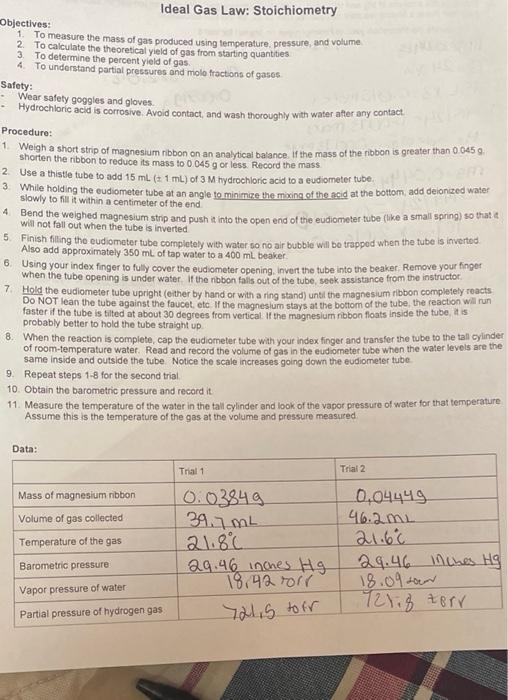 Ideal Gas Law: Stoichiometry
Objectives:
1. To measure the mass of gas produced using temperature, pressure, and volume.
2. To calculate the theoretical yield of gas from starting quantities.
3. To determine the percent yield of gas.
4. To understand partial pressures and mole fractions of gases.
Safety:
- Wear safety goggles and gloves.
- Hydrochloric acid is corrosive. Avoid contact, and wash thoroughly with water after any contact.
Procedure:
1. Weigh a short strip of magnesium ribbon on an analytical balance. If the mass of the ribbon is greater than 0.045 g,
shorten the ribbon to reduce its mass to 0.045 g or less. Record the mass.
2. Use a thistle tube to add 15 mL (± 1 mL) of 3 M hydrochloric acid to a eudiometer tube.
3. While holding the eudiometer tube at an angle to minimize the mixing of the acid at the bottom, add deionized water
slowly to fill it within a centimeter of the end.
4. Bend the weighed magnesium strip and push it into the open end of the eudiometer tube (like a small spring) so that it
will not fall out when the tube is inverted.
5. Finish filling the eudiometer tube completely with water so no air bubble will be trapped when the tube is inverted.
Also add approximately 350 mL of tap water to a 400 mL beaker.
6. Using your index finger to fully cover the eudiometer opening, invert the tube into the beaker. Remove your finger
when the tube opening is under water. If the ribbon falls out of the tube, seek assistance from the instructor.
7. Hold the eudiometer tube upright (either by hand or with a ring stand) until the magnesium ribbon completely reacts.
Do NOT lean the tube against the faucet, etc. If the magnesium stays at the bottom of the tube, the reaction will run
faster if the tube is tilted at about 30 degrees from vertical. If the magnesium ribbon floats inside the tube, it is
probably better to hold the tube straight up.
8. When the reaction is complete, cap the eudiometer tube with your index finger and transfer the tube to the tall cylinder
of room-temperature water. Read and record the volume of gas in the eudiometer tube when the water levels are the
same inside and outside the tube. Notice the scale increases going down the eudiometer tube.
9. Repeat steps 1-8 for the second trial.
10. Obtain the barometric pressure and record it.
11. Measure the temperature of the water in the tall cylinder and look of the vapor pressure of water for that temperature.
Assume this is the temperature of the gas at the volume and pressure measured.
Data:
Trial 1 Trial 2
Mass of magnesium ribbon 0.0384g 0.0444g
Volume of gas collected 39.7 mL 46.2 mL
Temperature of the gas 21.8°C 21.6°C
Barometric pressure 29.46 inches Hg 29.46 inches Hg
Vapor pressure of water 18.42 torr 18.09
Partial pressure of hydrogen gas 721.5 torr torr